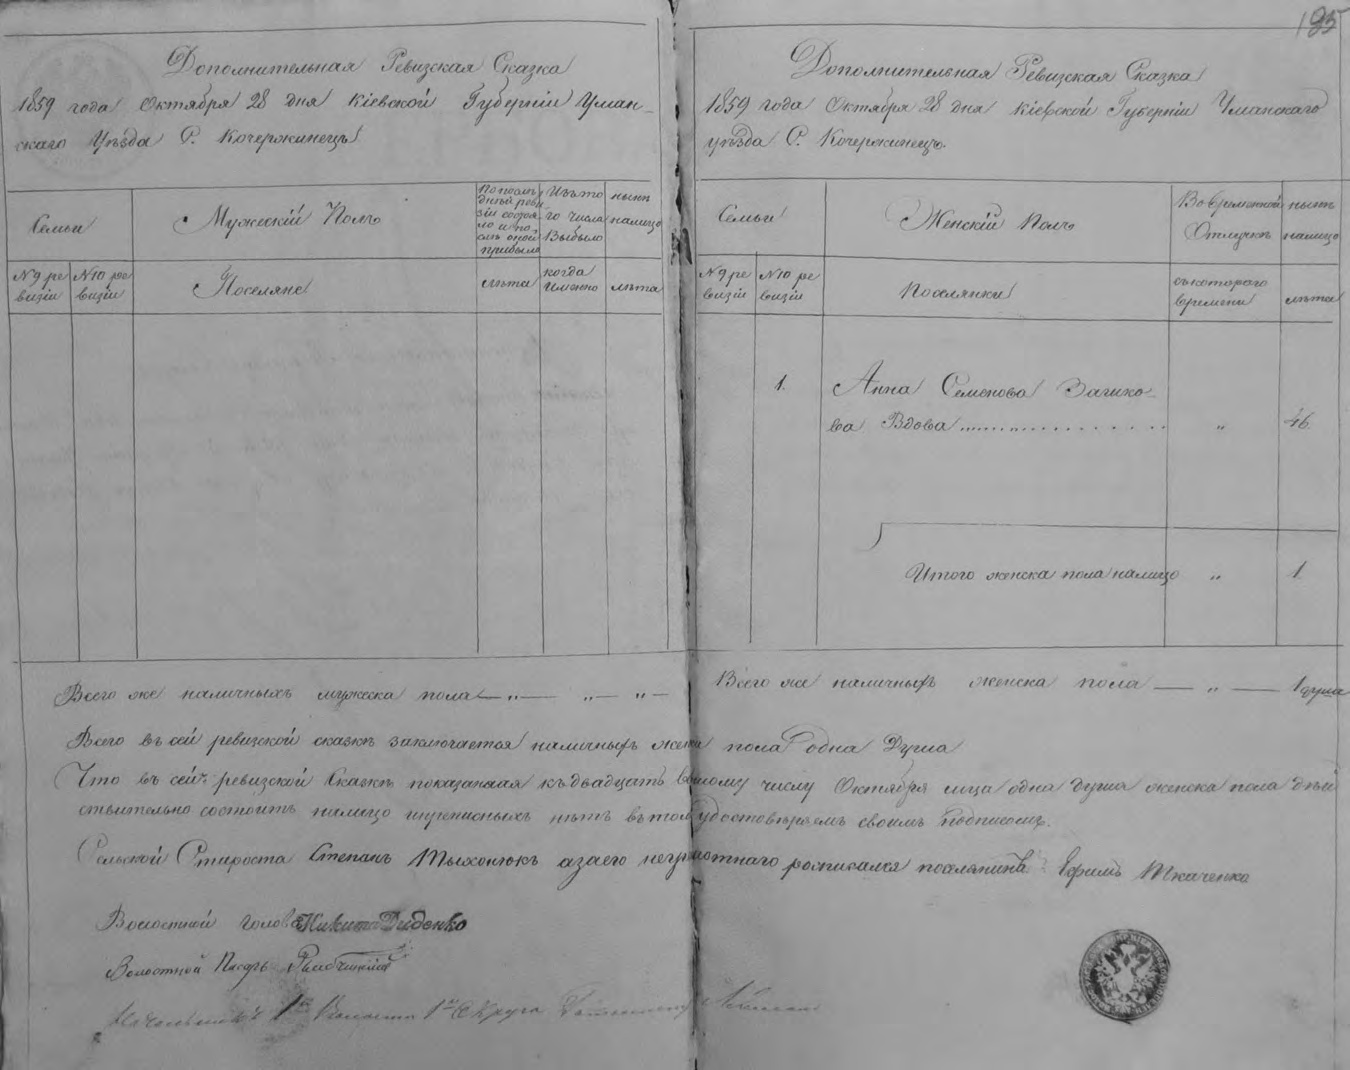 195
Дополнительная Ревизская Сказка
1859 года Октября 28 дня Кіевской Губерніи Уман-
скаго Уѣзда С. Кочержинецъ
Семьи
Мужескій Полъ
По послѣ-
дней реви
зіи состоя
ло и по-
слѣ оной
прибыло
Изъ то
го числа
Выбыло
нынѣ
налицо
№ 9 ре
визіи
№ 10 ре
визіи
Поселяне
лѣта
когда
именно
лѣта
Дополнительная Ревизская Сказка
1859 года Октября 28 дня Кіевской Губерніи Уманскаго
уѣзда С. Кочержинецъ.
Семьи
Женскій Полъ
Во временной
Отлучкѣ
нынѣ
налицо
№ 9 ре
визіи
№ 10 ре
визіи
Поселянки
съ котораго
времени
лѣта
1.
Анна Семенова Загико-
ва Вдова ..................
„
46.
Итого женска пола налицо „ 1
Всего же наличныхъ мужеска пола — „ — „ — „ —
Всего же наличныхъ женска пола — „ — 1 душа
Всего въ сей ревизской сказкѣ заключается наличныхъ женска пола одна Душа
Что въ сей ревизской Сказкѣ показанная къ двадцать восьмому числу Октября мца одна душа женска пола дѣй
ствительно состоитъ налицо и прописныхъ нѣтъ въ томъ удостовѣряемъ своимъ подписомъ.
Сельской Староста Степанъ Тыхонюкъ а за его неграмотнаго росписался поселянинъ Ефимъ Ткаченко
Волостной голова Никита Диденко
Волостной Писарь
Начальникъ 1й Волости 1го Округа